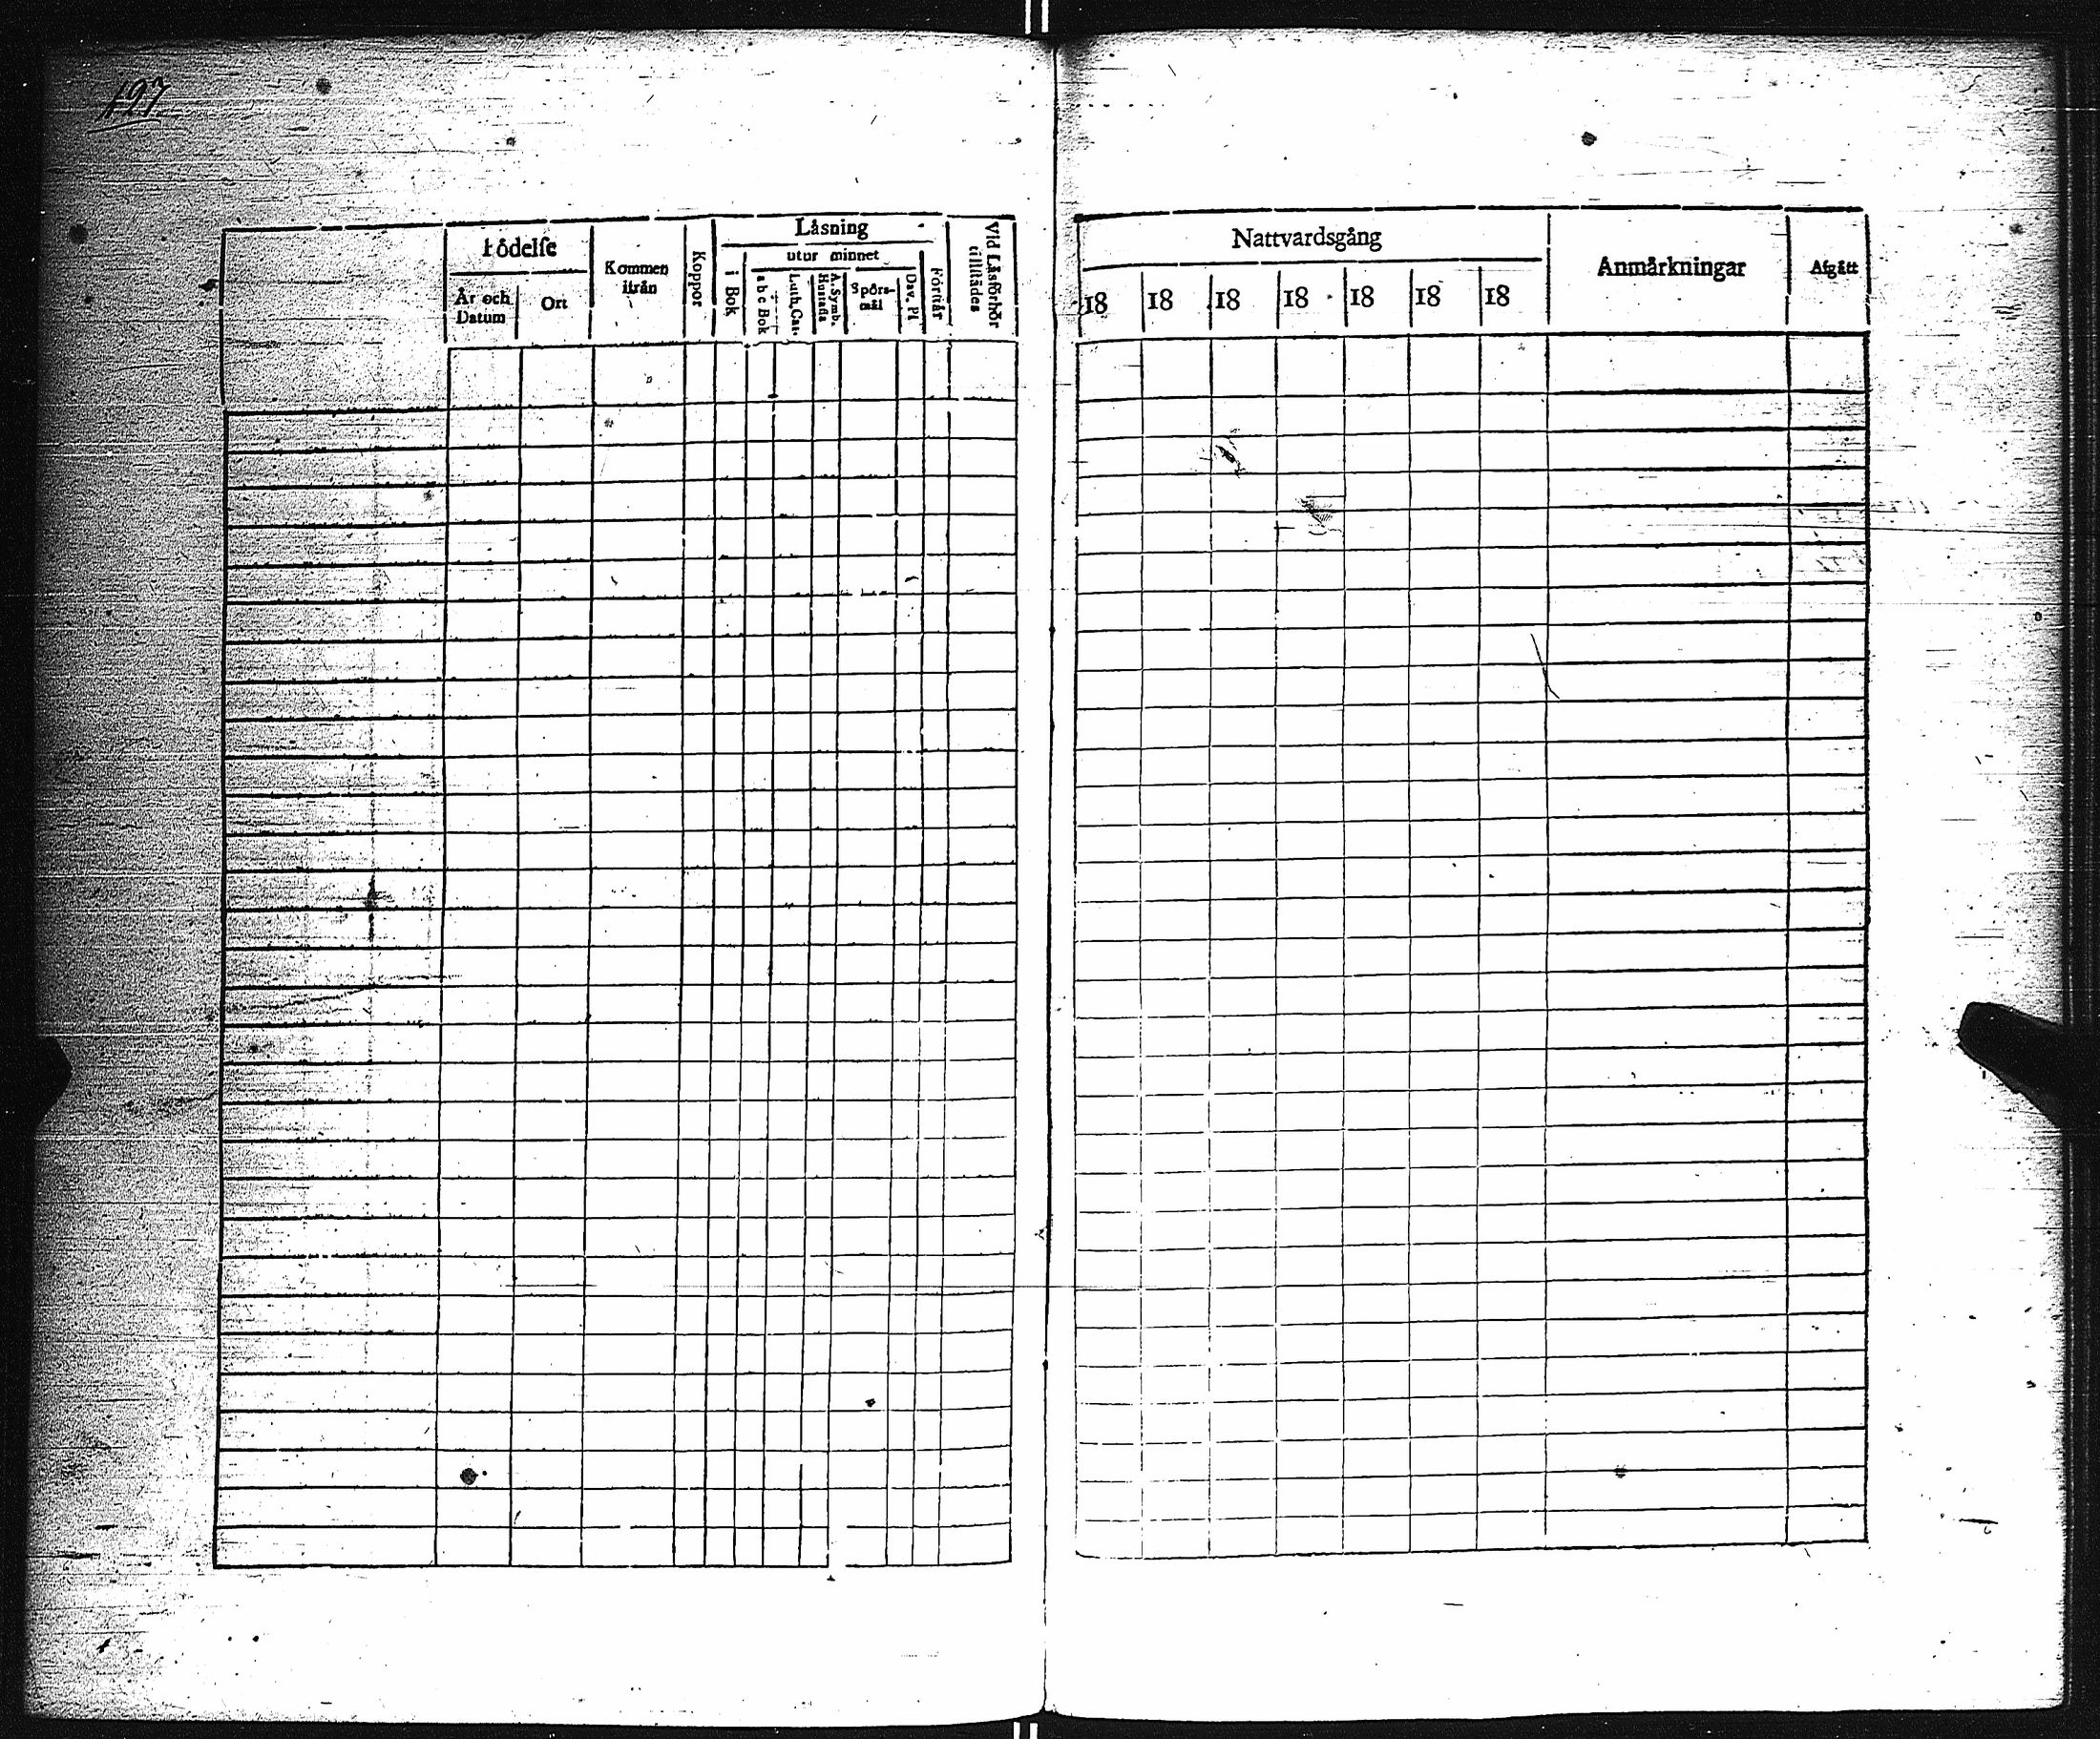 197
Födelse
År och Datum
Ort
Kommen ifrån
Koppor
Låsning
i Bok
utur minnet
a b c Bok
Luth. Cat.
A. Symb. Hustafla
Spörsmål
Dav. Ps
Förstår
Vid Låsförhör tillstädes
Nattvardsgång
18 18 18 18 18 18 18
Anmårkningar
Afgått